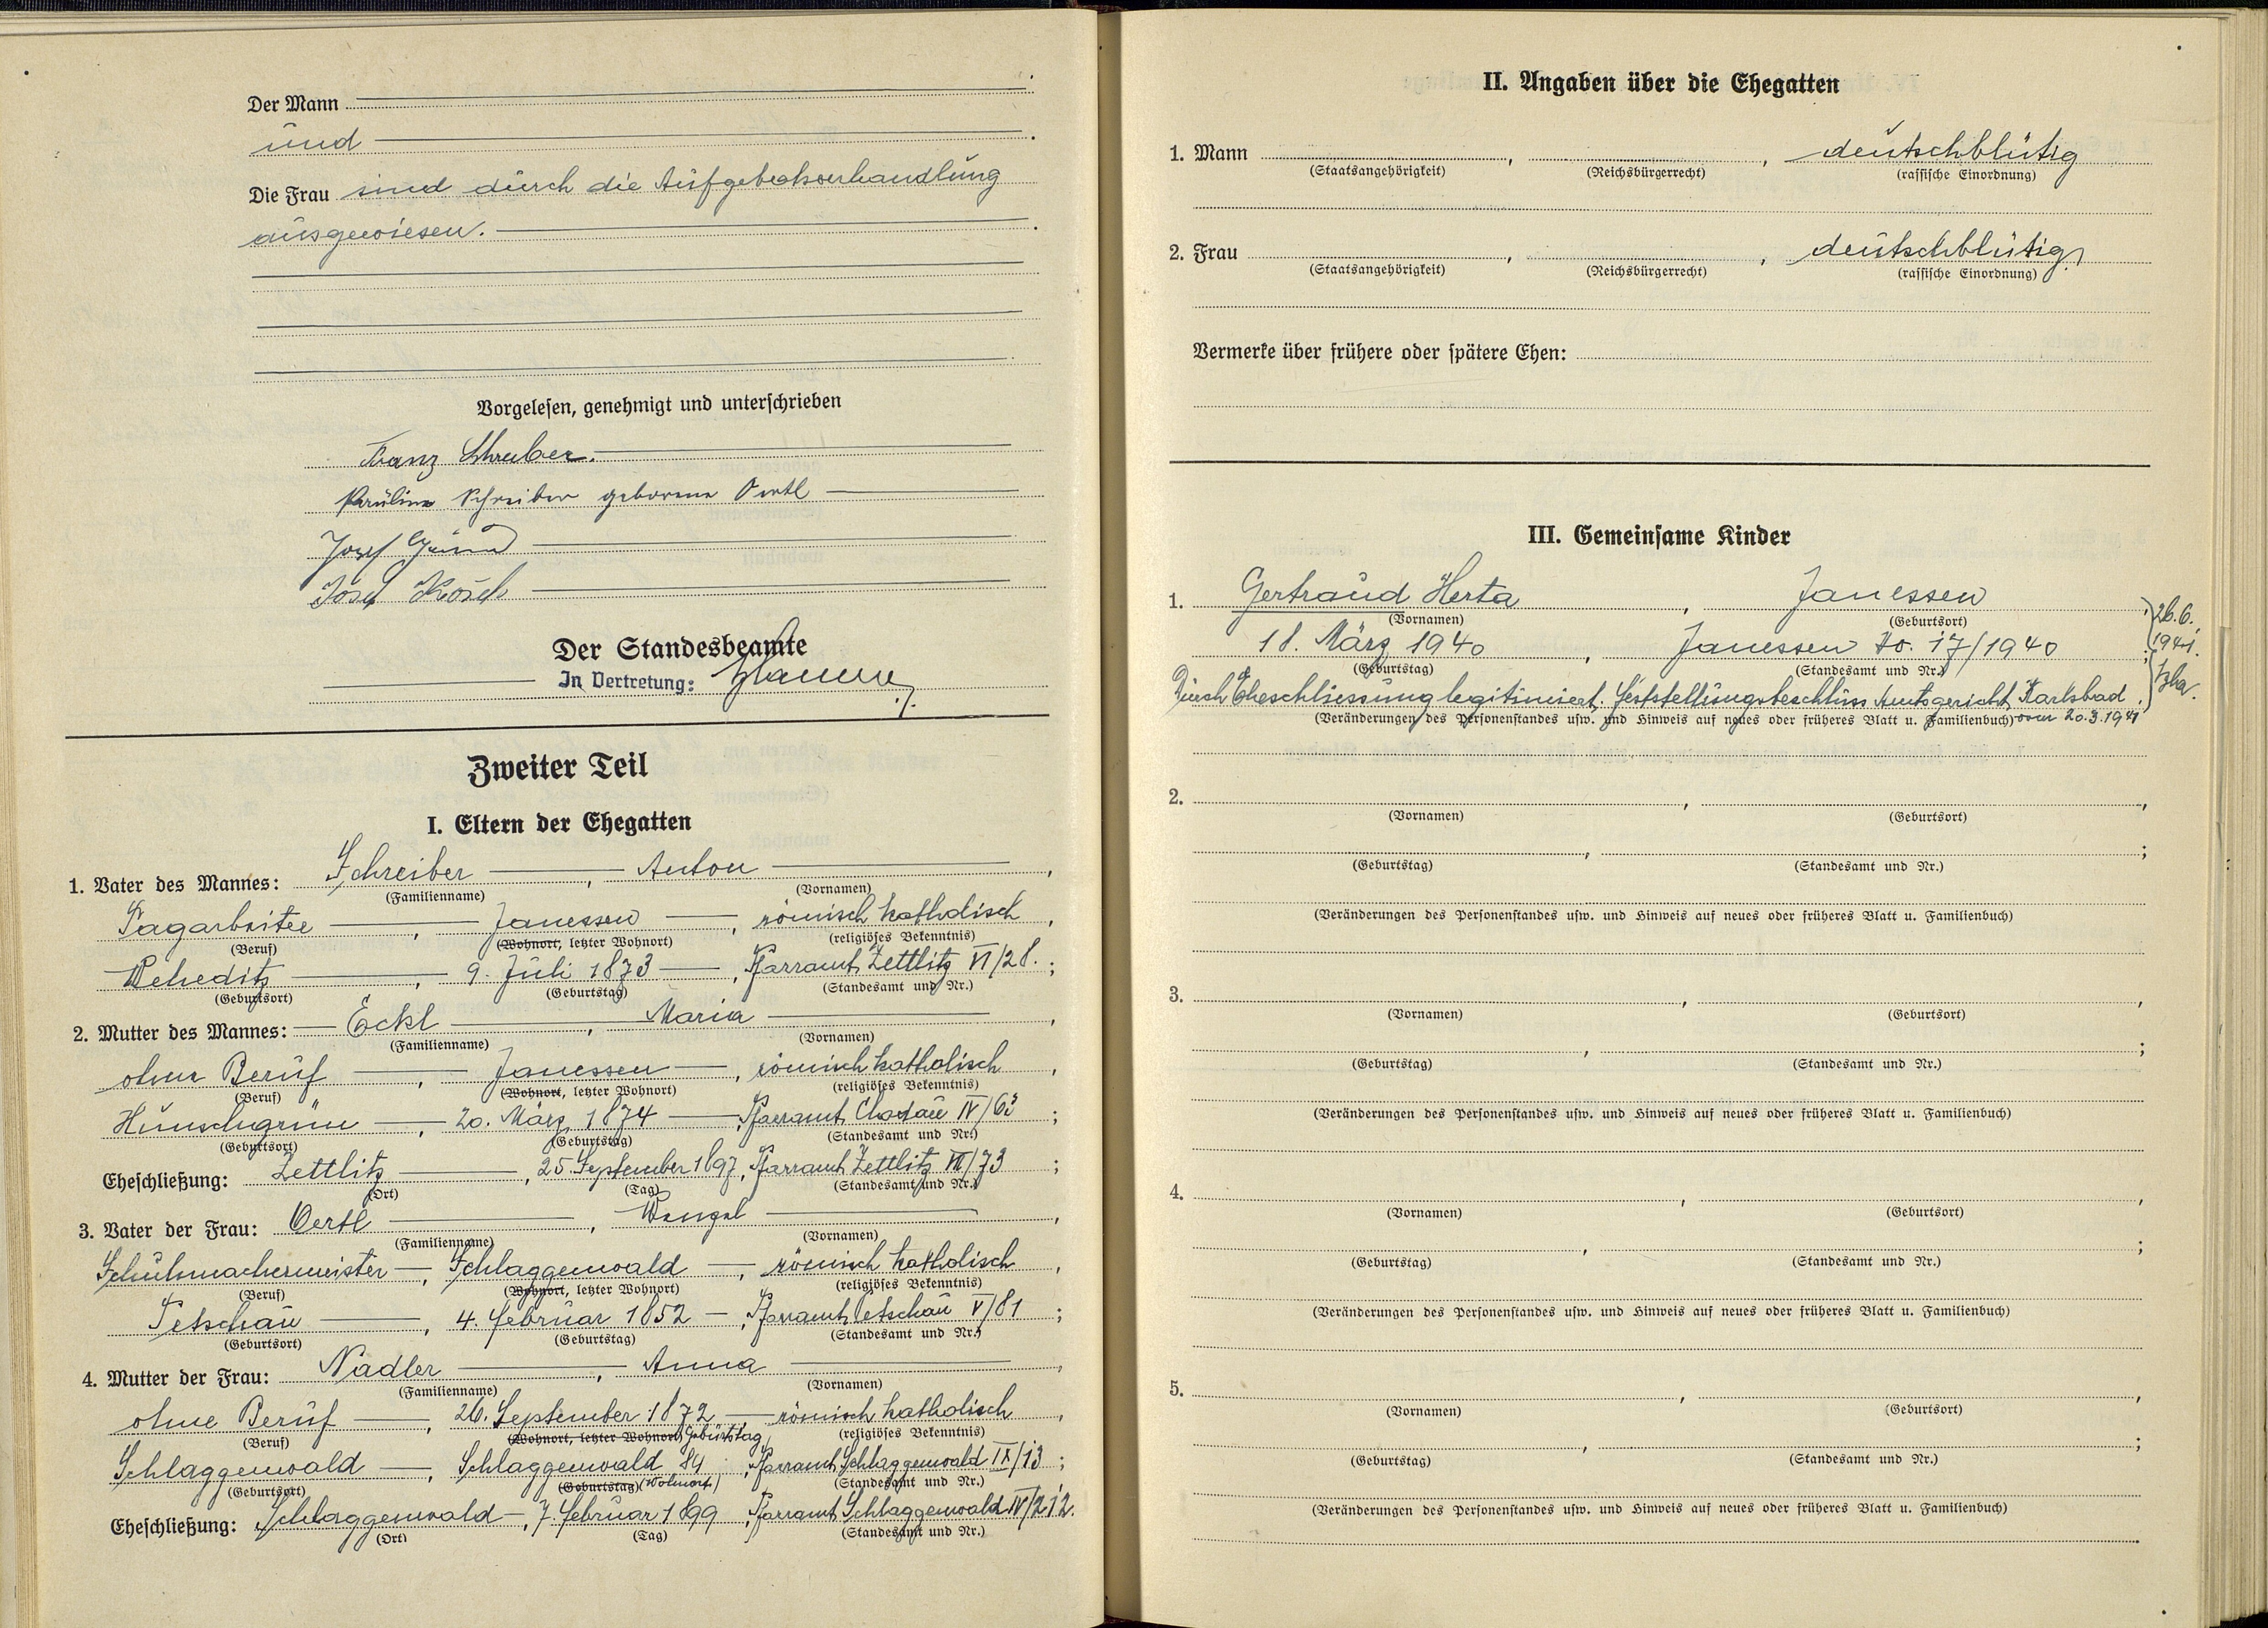 Der Mann
und
Die Frau sind durch die Aufgebotsverhandlung
ausgewiesen.
Vorgelesen, genehmigt und unterschrieben
Franz Schreiber.
Pauline Schreiber geborene Oertl
Josef
Josef
Der Standesbeamte
In Vertretung:
Zweiter Teil
I. Eltern der Ehegatten
1. Vater des Mannes: Schreiber, Anton,
(Familienname) (Vornamen)
Tagarbeiter, Janessen, römisch katholisch,
(Beruf) (Wohnort, letzter Wohnort) (religiöses Bekenntnis)
Weheditz, 9. Juli 1873, Pfarramt Zettlitz VI/28.;
(Geburtsort) (Geburtstag) (Standesamt und Nr.)
2. Mutter des Mannes: Eckl, Maria,
(Familienname) (Vornamen)
ohne Beruf, Janessen, römisch katholisch,
(Beruf) (Wohnort, letzter Wohnort) (religiöses Bekenntnis)
Hunschgrün, 20. März 1874, Pfarramt Chodau IV/63;
(Geburtsort) (Geburtstag) (Standesamt und Nr.)
Eheschließung: Zettlitz, 25. September 1897, Pfarramt Zettlitz VII/73;
(Ort) (Tag) (Standesamt und Nr.)
3. Vater der Frau: Oertl, Wenzel,
(Familienname) (Vornamen)
Schuhmachermeister, Schlaggenwald, römisch katholisch,
(Beruf) (Wohnort, letzter Wohnort) (religiöses Bekenntnis)
Petschau, 4. Februar 1852, Pfarramt Petschau V/81;
(Geburtsort) (Geburtstag) (Standesamt und Nr.)
4. Mutter der Frau: Nadler, Anna,
(Familienname) (Vornamen)
ohne Beruf, 26. September 1872, römisch katholisch,
(Beruf) (Wohnort, letzter Wohnort) Geburtstag (religiöses Bekenntnis)
Schlaggenwald, Schlaggenwald 84, Pfarramt Schlaggenwald IX/13;
(Geburtsort) (Geburtstag) (Wohnort) (Standesamt und Nr.)
Eheschließung: Schlaggenwald, 7. Februar 1899, Pfarramt Schlaggenwald IV/212.
(Ort) (Tag) (Standesamt und Nr.)
II. Angaben über die Ehegatten
1. Mann , , deutschblütig
(Staatsangehörigkeit) (Reichsbürgerrecht) (rassische Einordnung)
2. Frau , , deutschblütig
(Staatsangehörigkeit) (Reichsbürgerrecht) (rassische Einordnung)
Vermerke über frühere oder spätere Ehen:
III. Gemeinsame Kinder
1. Gertraud Herta, Janessen,
(Vornamen) (Geburtsort)
26.6.
18. März 1940, Janessen No. 17/1940;
1941.
(Geburtstag) (Standesamt und Nr.)
Durch Eheschliessung legitimiert. Feststellungsbeschluss Amtsgericht Karlsbad
(Veränderungen des Personenstandes usw. und Hinweis auf neues oder früheres Blatt u. Familienbuch) vom 20.3.1941
2. , ,
(Vornamen) (Geburtsort)
, ;
(Geburtstag) (Standesamt und Nr.)
(Veränderungen des Personenstandes usw. und Hinweis auf neues oder früheres Blatt u. Familienbuch)
3. , ,
(Vornamen) (Geburtsort)
, ;
(Geburtstag) (Standesamt und Nr.)
(Veränderungen des Personenstandes usw. und Hinweis auf neues oder früheres Blatt u. Familienbuch)
4. , ,
(Vornamen) (Geburtsort)
, ;
(Geburtstag) (Standesamt und Nr.)
(Veränderungen des Personenstandes usw. und Hinweis auf neues oder früheres Blatt u. Familienbuch)
5. , ,
(Vornamen) (Geburtsort)
, ;
(Geburtstag) (Standesamt und Nr.)
(Veränderungen des Personenstandes usw. und Hinweis auf neues oder früheres Blatt u. Familienbuch)